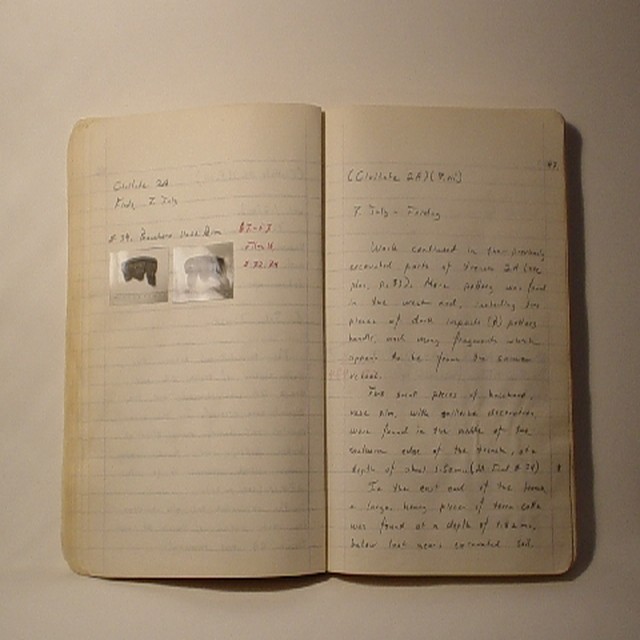 Civitate 2A
Friday 7 July
# 34. Bucchero Vase Rim
Film
# 32, 
47.
(Civitate 2A)
7 July - Friday
Work continued in the previously
excavated part of trench 2A (see
plan, p. 
). More pottery was found
in the west end, including two
pieces of dark impasto (?) pottery
handle, and many fragments which
appear to be from the same
vessel.
Two small pieces of bucchero
vase rim, with
decoration
were found in the middle of the
southern edge of the trench, at a
depth of about
In the east end of the trench
a large, heavy piece of terra cotta
was found at a depth of
below last years excavated soil.